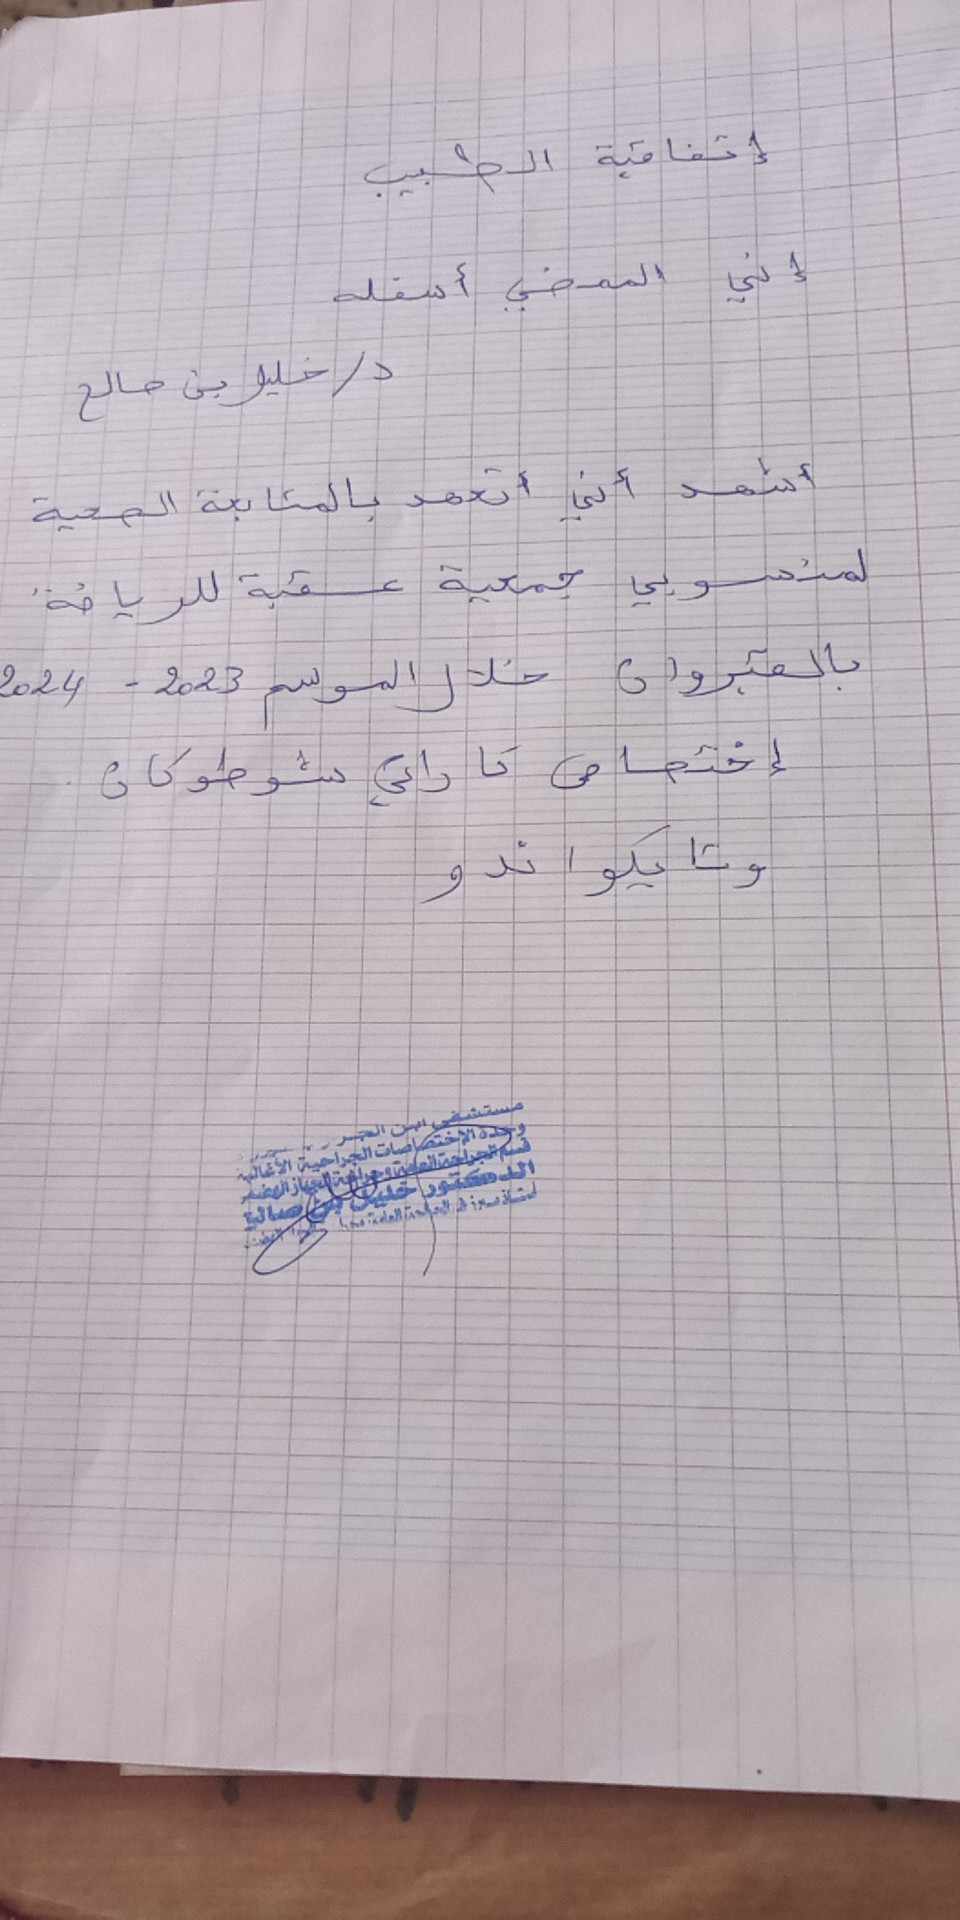 إتفاقية الطبيب
إني الممضي أسفله
د/ خليل بن صالح
أشهد أني أتعهد بالمتابعة الصحية
لمنسوبي جمعية عقبة للرياضة
بالقيروان خلال الموسم 2023 - 2024
إختصاص كاراتي شوطوكان
وتايكواندو
مستشفى ابن الجزار
وحدة الإختصاصات الجراحية الأغالبة
قسم الجراحة العامة وجراحة الجهاز الهضمي
الدكتور خليل بن صالح